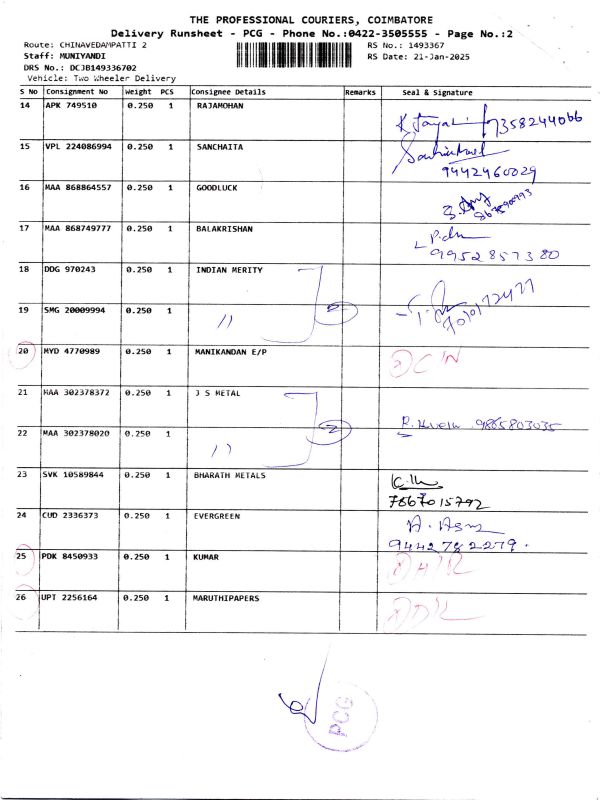 THE PROFESSIONAL COURIERS, COIMBATORE
Delivery Runsheet - PCG - Phone No.:0422-3505555 - Page No.:2
Route: CHINAVEDAMPATTI 2 RS No.: 1493367
Staff: MUNIYANDI RS Date: 21-Jan-2025
DRS No.: DCJB149336702
Vehicle: Two Wheeler Delivery
S No Consignment No Weight PCS Consignee Details Remarks Seal & Signature
14 APK 749510 0.250 1 RAJAMOHAN
7358244066
15 VPL 224086994 0.250 1 SANCHAITA
9442460029
16 MAA 868864557 0.250 1 GOODLUCK
17 MAA 868749777 0.250 1 BALAKRISHAN
9952857380
18 DDG 970243 0.250 1 INDIAN MERITY
19 SMG 20009994 0.250 1 〃 2
20 MYD 4770989 0.250 1 MANIKANDAN E/P
21 MAA 302378372 0.250 1 J S METAL
9865803035
22 MAA 302378020 0.250 1 〃 2
23 SVK 10589844 0.250 1 BHARATH METALS
7867015792
24 CUD 2336373 0.250 1 EVERGREEN
9442782279.
25 PDK 8450933 0.250 1 KUMAR
26 UPT 2256164 0.250 1 MARUTHIPAPERS
PCG